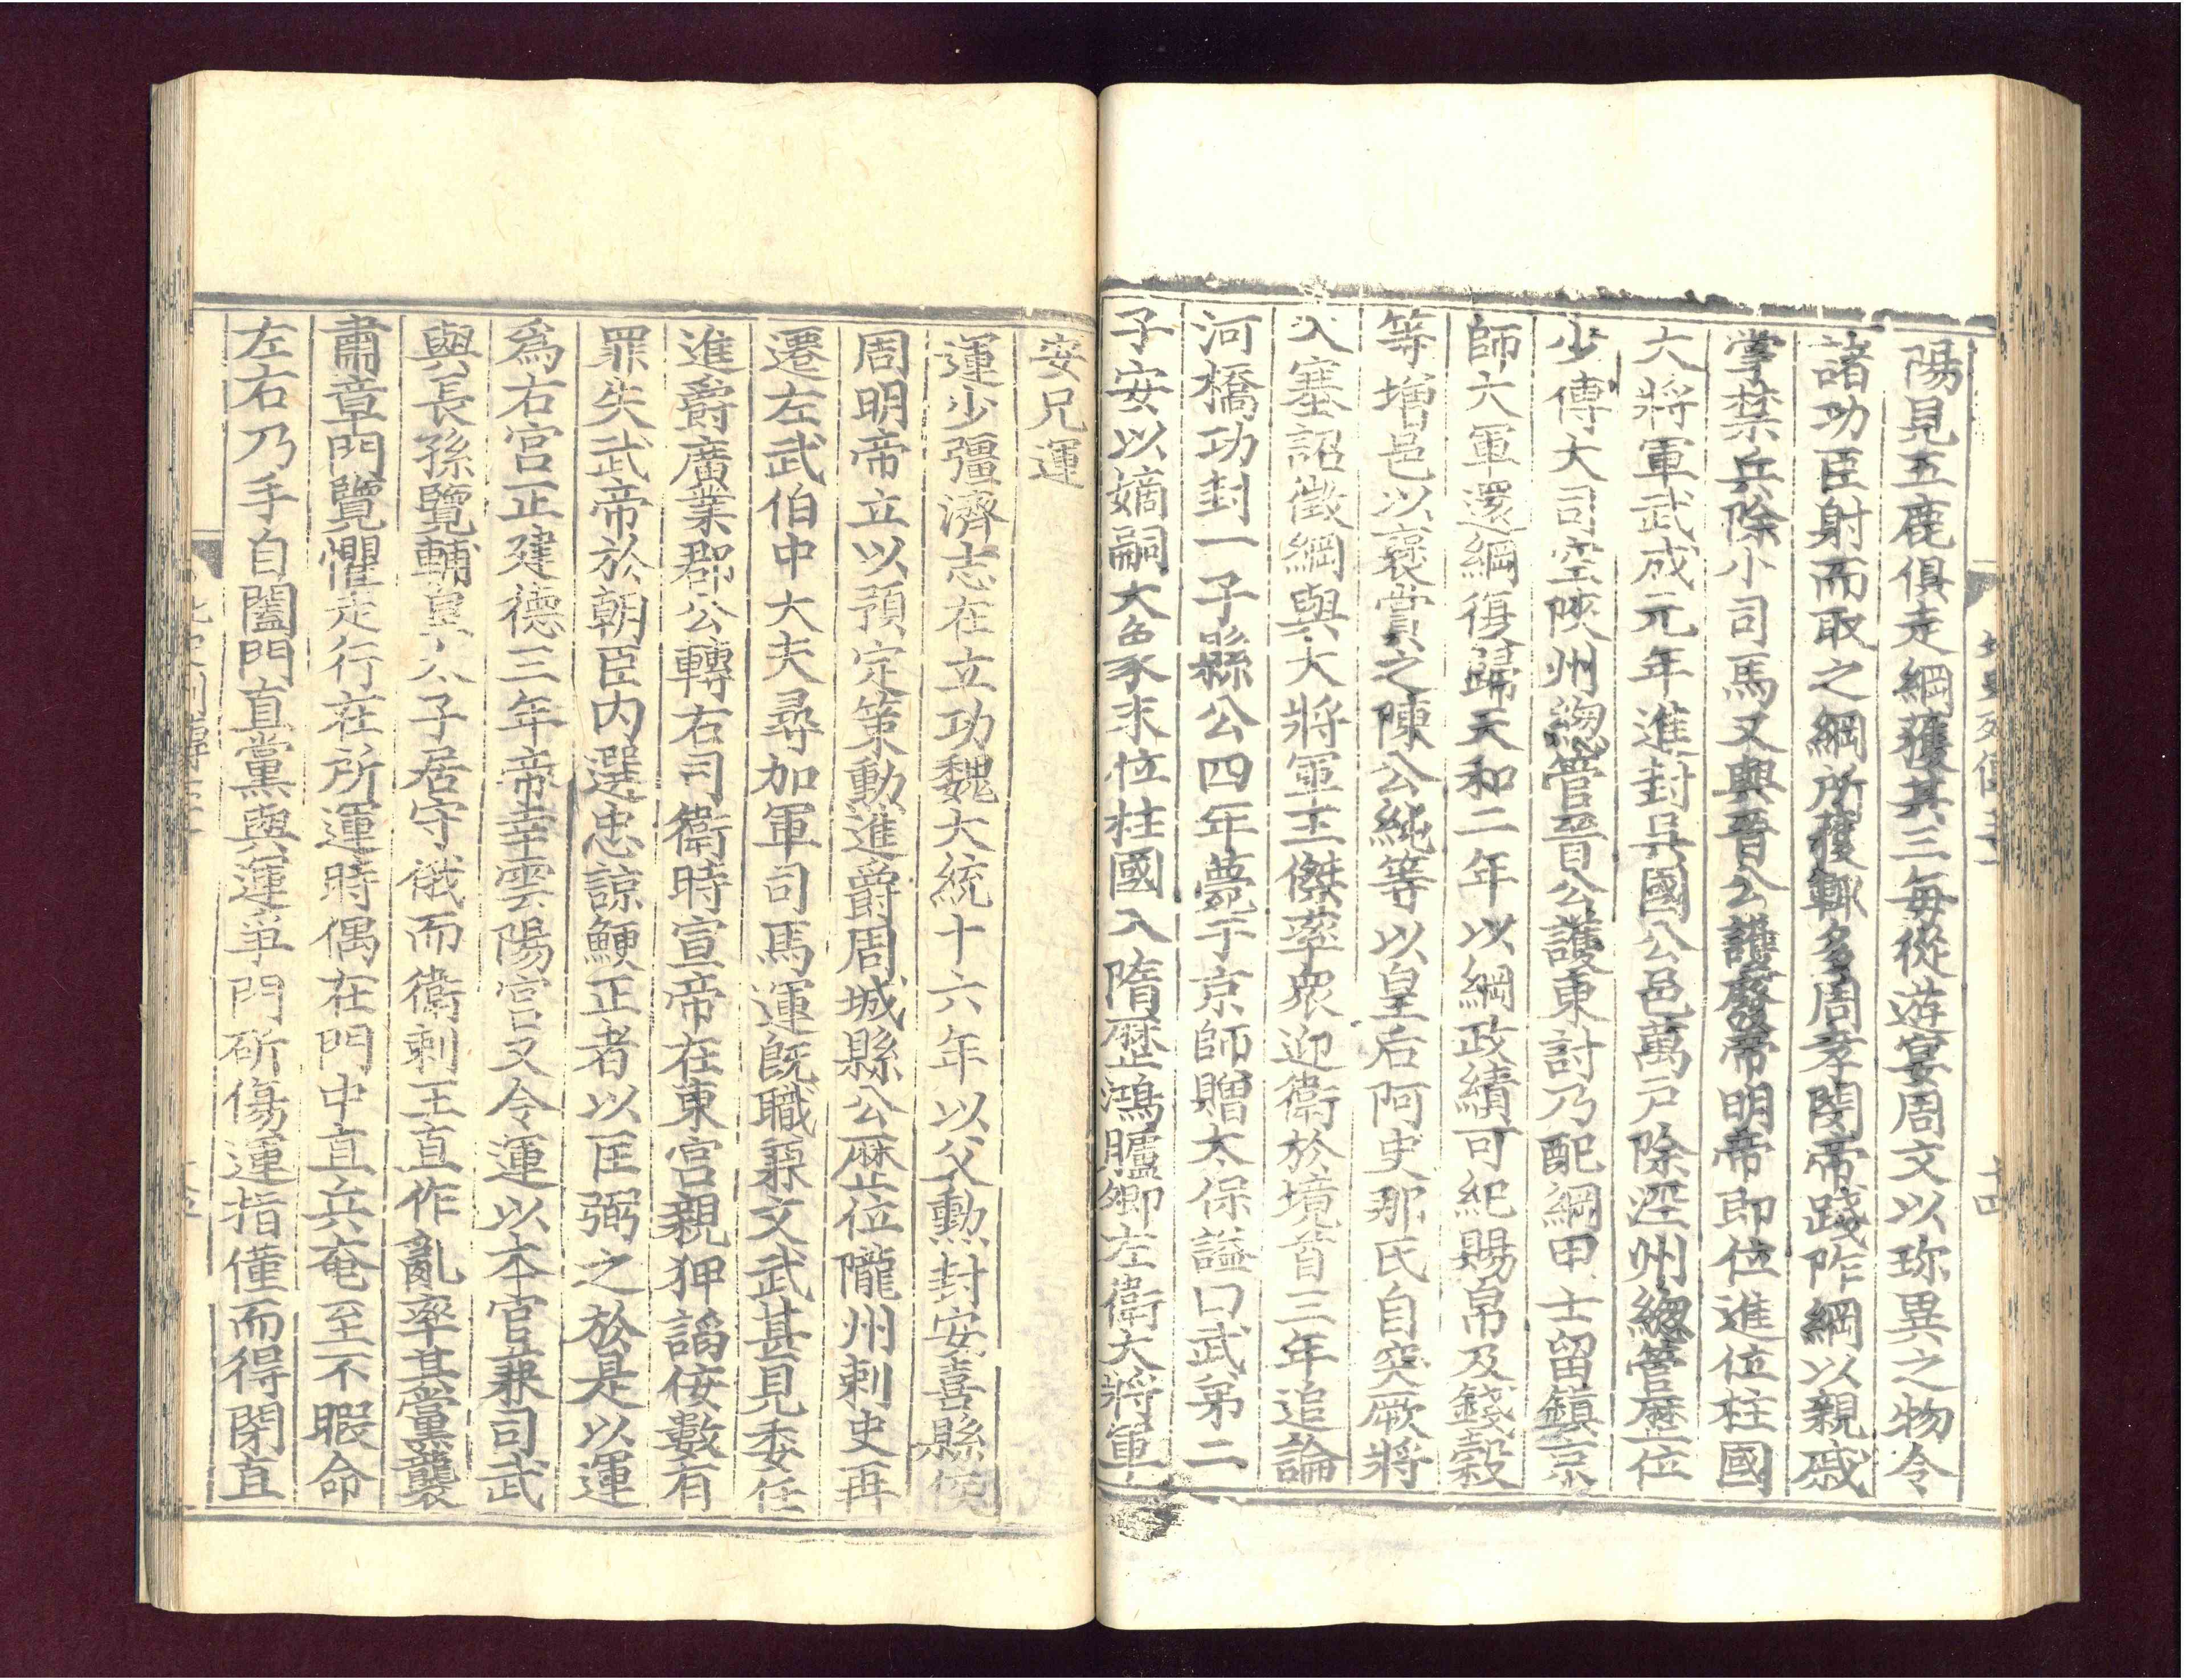 陽見五鹿俱走綱獲其三每從遊宴周文以珎異之物令
諸功臣射而取之綱所獲輒多周孝閔帝踐阼綱以親戚
掌禁兵除小司馬又與晉公護廢帝明帝即位進位柱國
大將軍武成元年進封吳國公邑萬戶除涇州緫管歷位
少傅大司空陝州緫管晉公護東討乃配綱甲士留鎮京
師大軍還綱復歸天和二年以綱政績可紀賜帛及錢穀
等增邑以襃賞之陳公純等以皇后阿史那氏自突厥將
入塞詔徵綱與大將軍王傑率衆迎衞於境首三年追論
河橋功封一子縣公四年薨于京師贈太保謚曰武弟二
子安以嫡嗣大象末位柱國入隋歷鴻臚卿左衞大將軍
安兄運
運少彊濟志在立功魏大統十六年以父勲封安喜縣侯
周明帝立以預定策勳進爵周城縣公歷位隴州剌史再
遷左武伯中大夫尋加軍司馬運旣職兼文武甚見委任
進爵廣業郡公轉右司衞時宣帝在東宮親狎謟佞數有
罪失武帝於朝臣內選忠諒鯁正者以匡弼之於是以運
爲右宮正建德三年帝幸雲陽宮又令運以本官兼司武
與長孫覽輔皇太子居守俄而衞剌王直作亂率其黨襲
肅章門覽懼走行在所運時偶在門中直兵奄至不暇命
左右乃手自闔門直黨與運爭門斫傷運指僅而得閉直